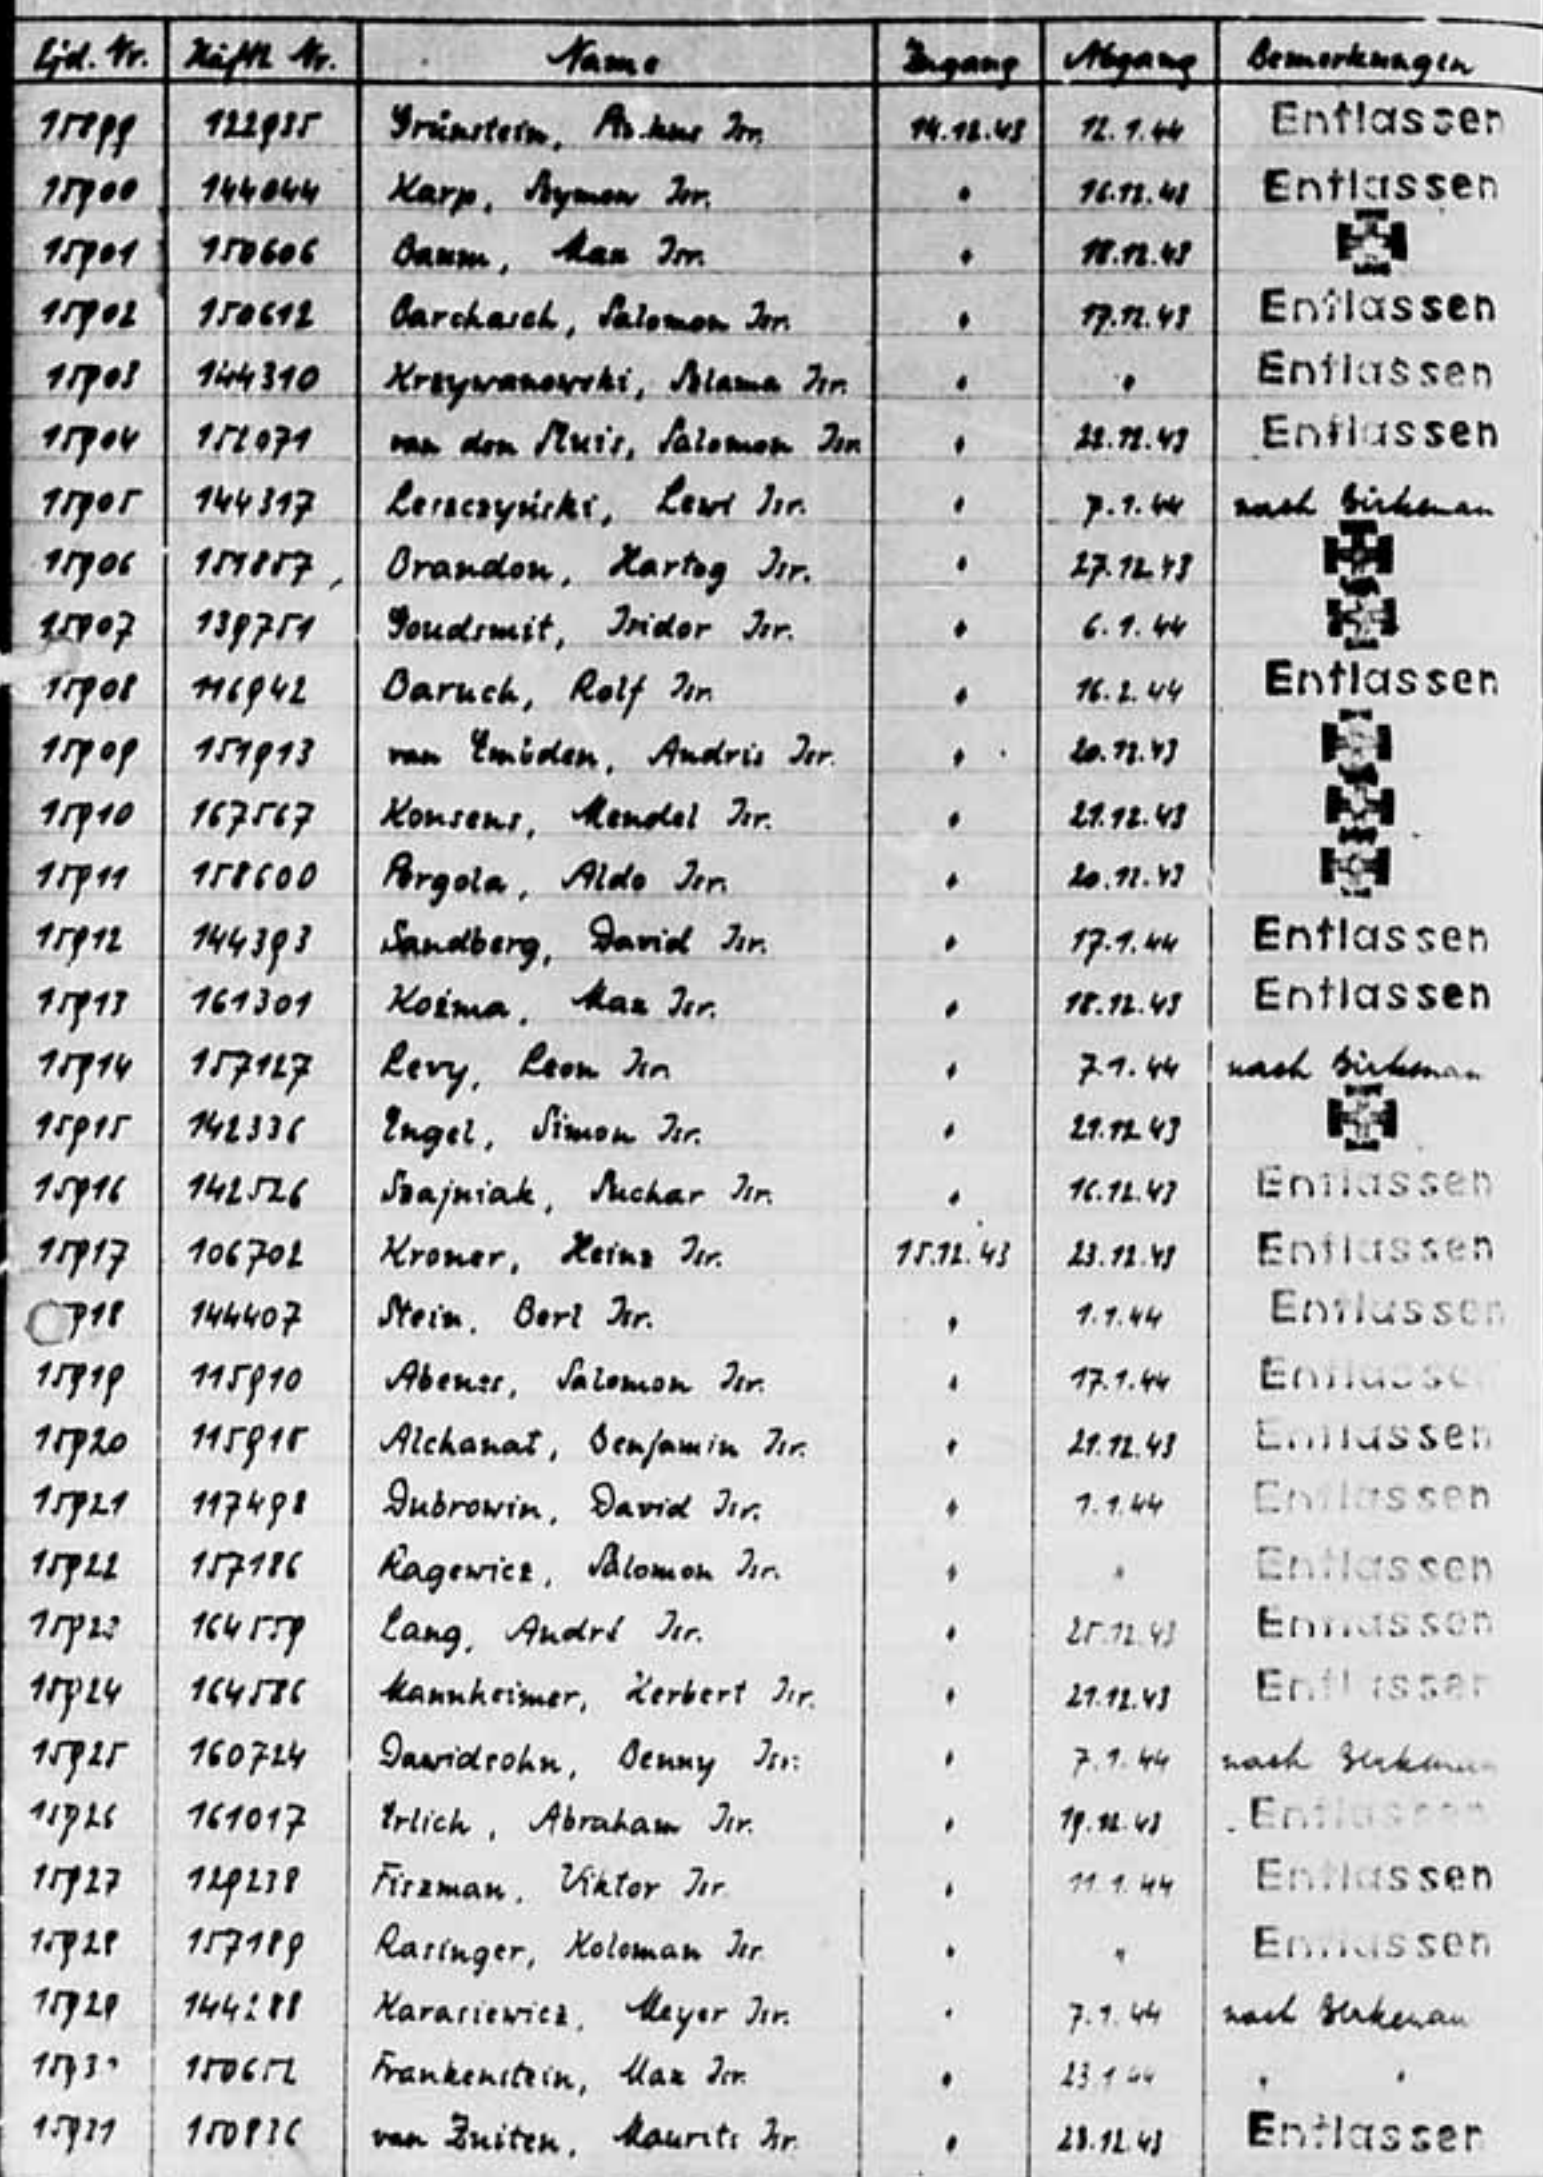 Lfd. Nr. Häftl. Nr. Name Zugang Abgang Bemerkungen
15899 122935 Grünstein, Isr. 14.12.43 12.1.44 Entlassen
15900 144044 Karp, Szymon Isr. " 16.12.43 Entlassen
15901 150606 Baum, Max Isr. " 18.12.43
15902 150612 Barchasch, Salomon Isr. " 17.12.43 Entlassen
15903 144310 Krzywanowski, Szlama Isr. " " Entlassen
15904 152071 van den Sluis, Salomon Isr. " 22.12.43 Entlassen
15905 144317 Leszczyński, Lewi Isr. " 7.1.44 nach Birkenau
15906 151857 Brandon, Hartog Isr. " 27.12.43
15907 139751 Goudsmit, Isidor Isr. " 6.1.44
15908 116942 Baruch, Rolf Isr. " 16.2.44 Entlassen
15909 151913 van Embden, Andris Isr. " 20.12.43
15910 167567 Konsens, Mendel Isr. " 21.12.43
15911 158600 Pergola, Aldo Isr. " 20.12.43
15912 144393 Sandberg, David Isr. " 17.1.44 Entlassen
15913 161301 Koźma, Max Isr. " 18.12.43 Entlassen
15914 157127 Levy, Leon Isr. " 7.1.44 nach Birkenau
15915 142336 Engel, Simon Isr. " 21.12.43
15916 142526 Szajniak, Suchar Isr. " 16.12.43 Entlassen
15917 106702 Kroner, Heinz Isr. 15.12.43 23.12.43 Entlassen
918 144407 Stein, Berl Isr. " 1.1.44 Entlassen
15919 115910 Salomon Isr. " 17.1.44 Entlassen
15920 115915 Alchanat, Benjamin Isr. " 21.12.43 Entlassen
15921 117498 Dubrowin, David Isr. " 1.1.44 Entlassen
15922 157186 Ragewicz, Salomon Isr. " " Entlassen
15923 164559 Lang, André Isr. " 25.12.43 Entlassen
15924 164586 Mannheimer, Herbert Isr. " 21.12.43 Entlassen
15925 160724 Dawidsohn, Benny Isr. " 7.1.44 nach Birkenau
15926 161017 Erlich, Abraham Isr. " 19.12.43 Entlassen
15927 129238 Fiszman, Viktor Isr. " 11.1.44 Entlassen
15928 157189 Rasinger, Koloman Isr. " " Entlassen
15929 144288 Karasiewicz, Meyer Isr. " 7.1.44 nach Birkenau
1593 150652 Frankenstein, Max Isr. " 23.1.44 " "
15931 150836 van Zuiten, Maurits Isr. " 23.12.43 Entlassen